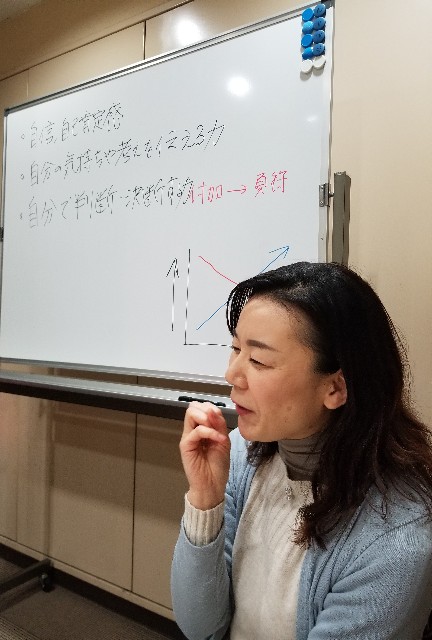 ・自信,自己肯定感
・自分の気持ちや考えを伝える力
・自分で判断・決断する力
付加 → 負荷